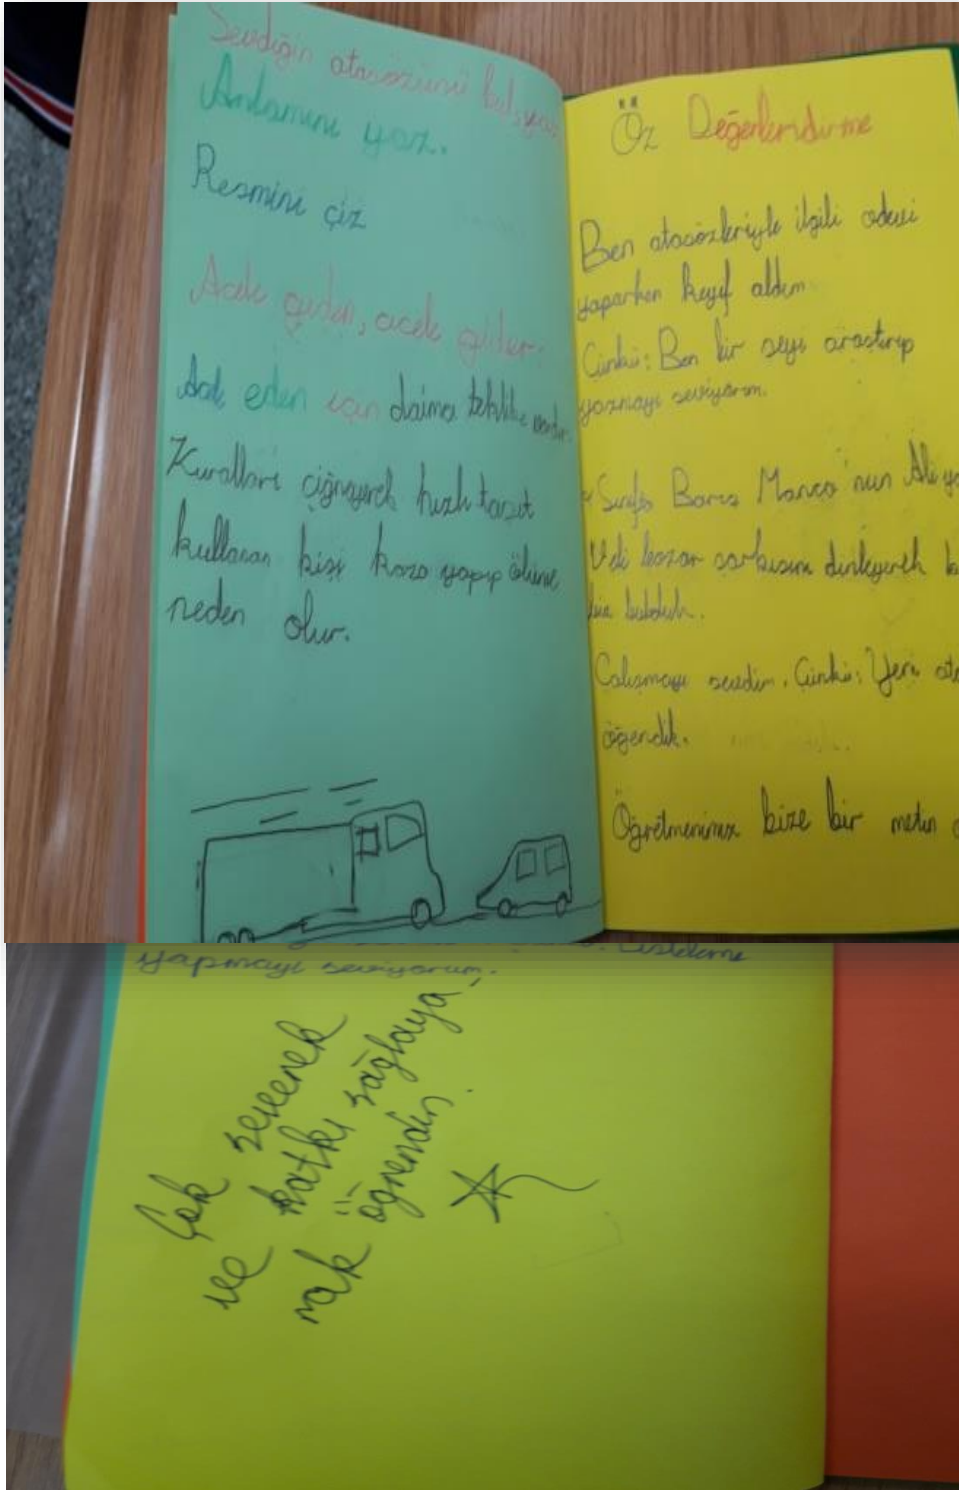 Sevdiğin atasözünü bul, yaz
Anlamını yaz.
Resmini çiz
Acele giden, ecele gider.
Acele eden için daima tehlike vardır.
Kuralları çiğneyerek hızlı taşıt
kullanan kişi kaza yapıp ölüme
neden olur.
Öz Değerlendirme
Ben atasözleriyle ilgili ödevi
yaparken keyif aldım
Çünkü: Ben bir şeyi araştırıp
yazmayı seviyorum.
Sınıfta Barış Manço'nun Ali ya
Veli bazar şarkısını dinleyerek b
bulduk.
Çalışmayı sevdim. Çünkü: Yeni ata
öğendik.
Öğretmenimiz bize bir metin
yapmayı seviyorum.
Çok severek
ve katkı sağlaya-
rak öğrendin.